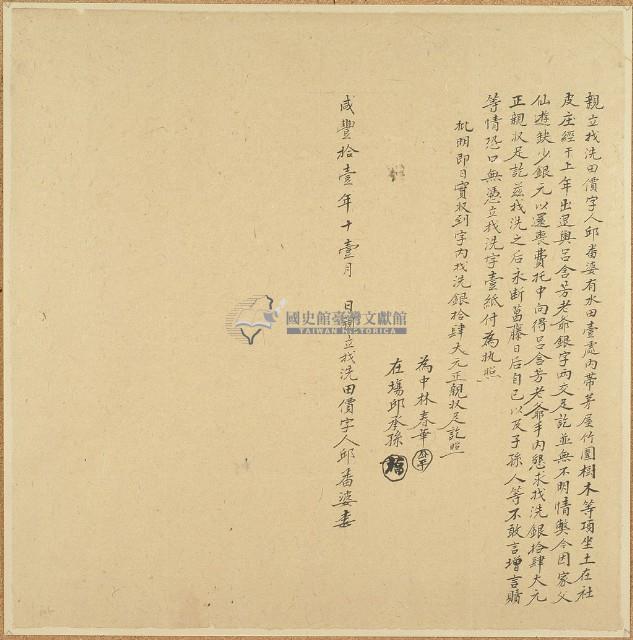 親立找洗田價字人邱番婆有水田壹處內帶茅屋竹圍樹木等項坐土在社
皮庄經于上年出退與呂含芳老爺銀字兩交足訖並無不明情弊今因家父
仙遊缺少銀元以還喪費托中向得呂含芳老爺手內懇求找洗銀拾肆大元
正親收足訖茲找洗之后永斷葛藤日后自己以及子孫人等不敢言增言贖
等情恐口無憑立找洗字壹紙付為执照
批明即日實收到字內找洗銀拾肆大元正親收足訖照
為中林春華
在塲邱孫
咸豐拾壹年十壹月 日親立找洗田價字人邱番婆
國史館臺灣文獻館
TAIWAN HISTORICA